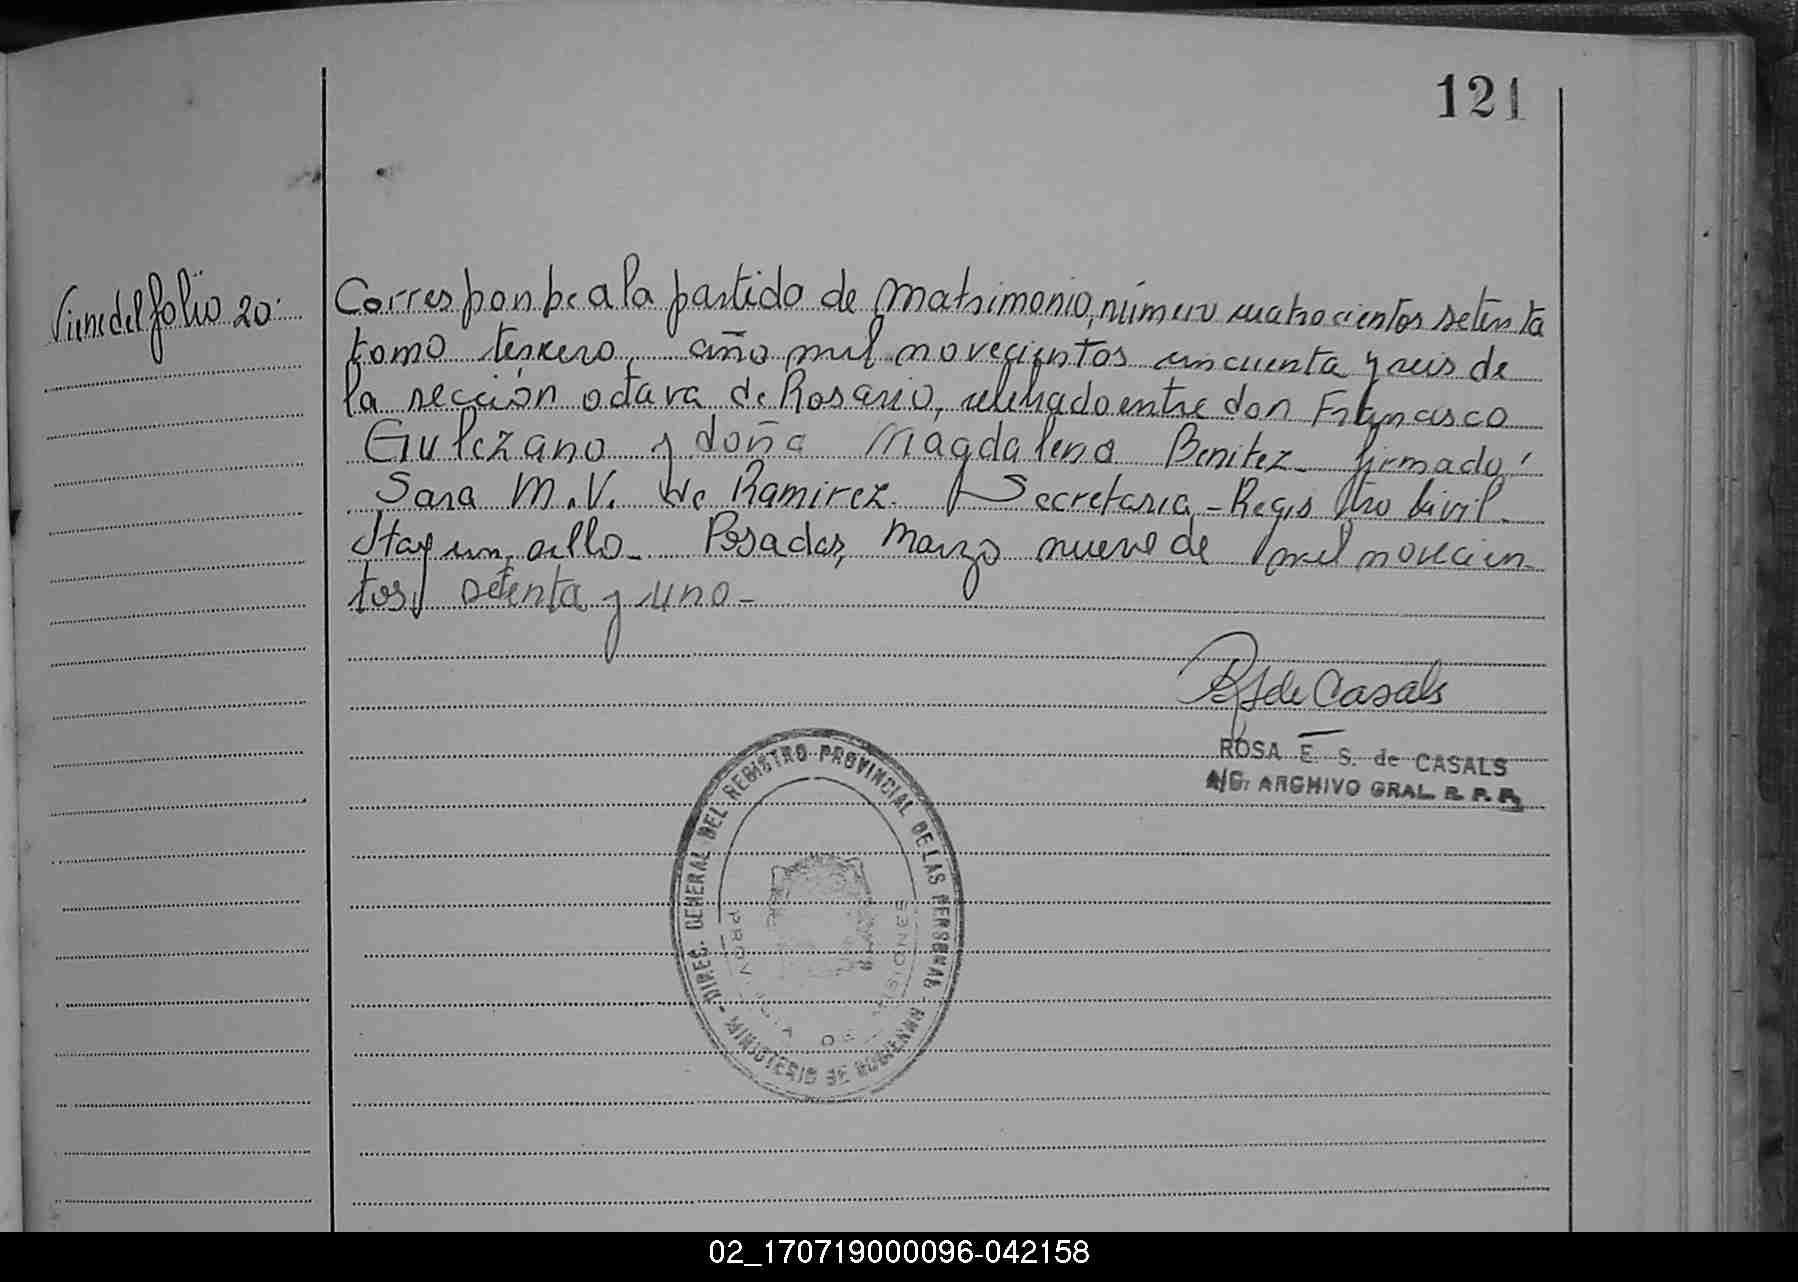 121
Viene del folio 20.
Corresponde a la partida de matrimonio, número cuatrocientos setenta
tomo tercero, año mil novecientos cincuenta y seis de
la sección octava de Rosario, celebrado entre don Francisco
Gulezano y doña Magdalena Benitez - firmado:
Sara M. V. de Ramirez. Secretaria - Registro Civil.
Hay un sello - Posadas, Marzo nueve de mil novecien
tos setenta y uno -
de Casals
ROSA E. S. de CASALS
A/C. ARCHIVO GRAL R. P. P.
DIREC. GENERAL DEL REGISTRO PROVINCIAL DE LAS PERSONAS
- MINISTERIO DE GOBIERNO -
PROVINCIA DE MISIONES
02_170719000096-042158